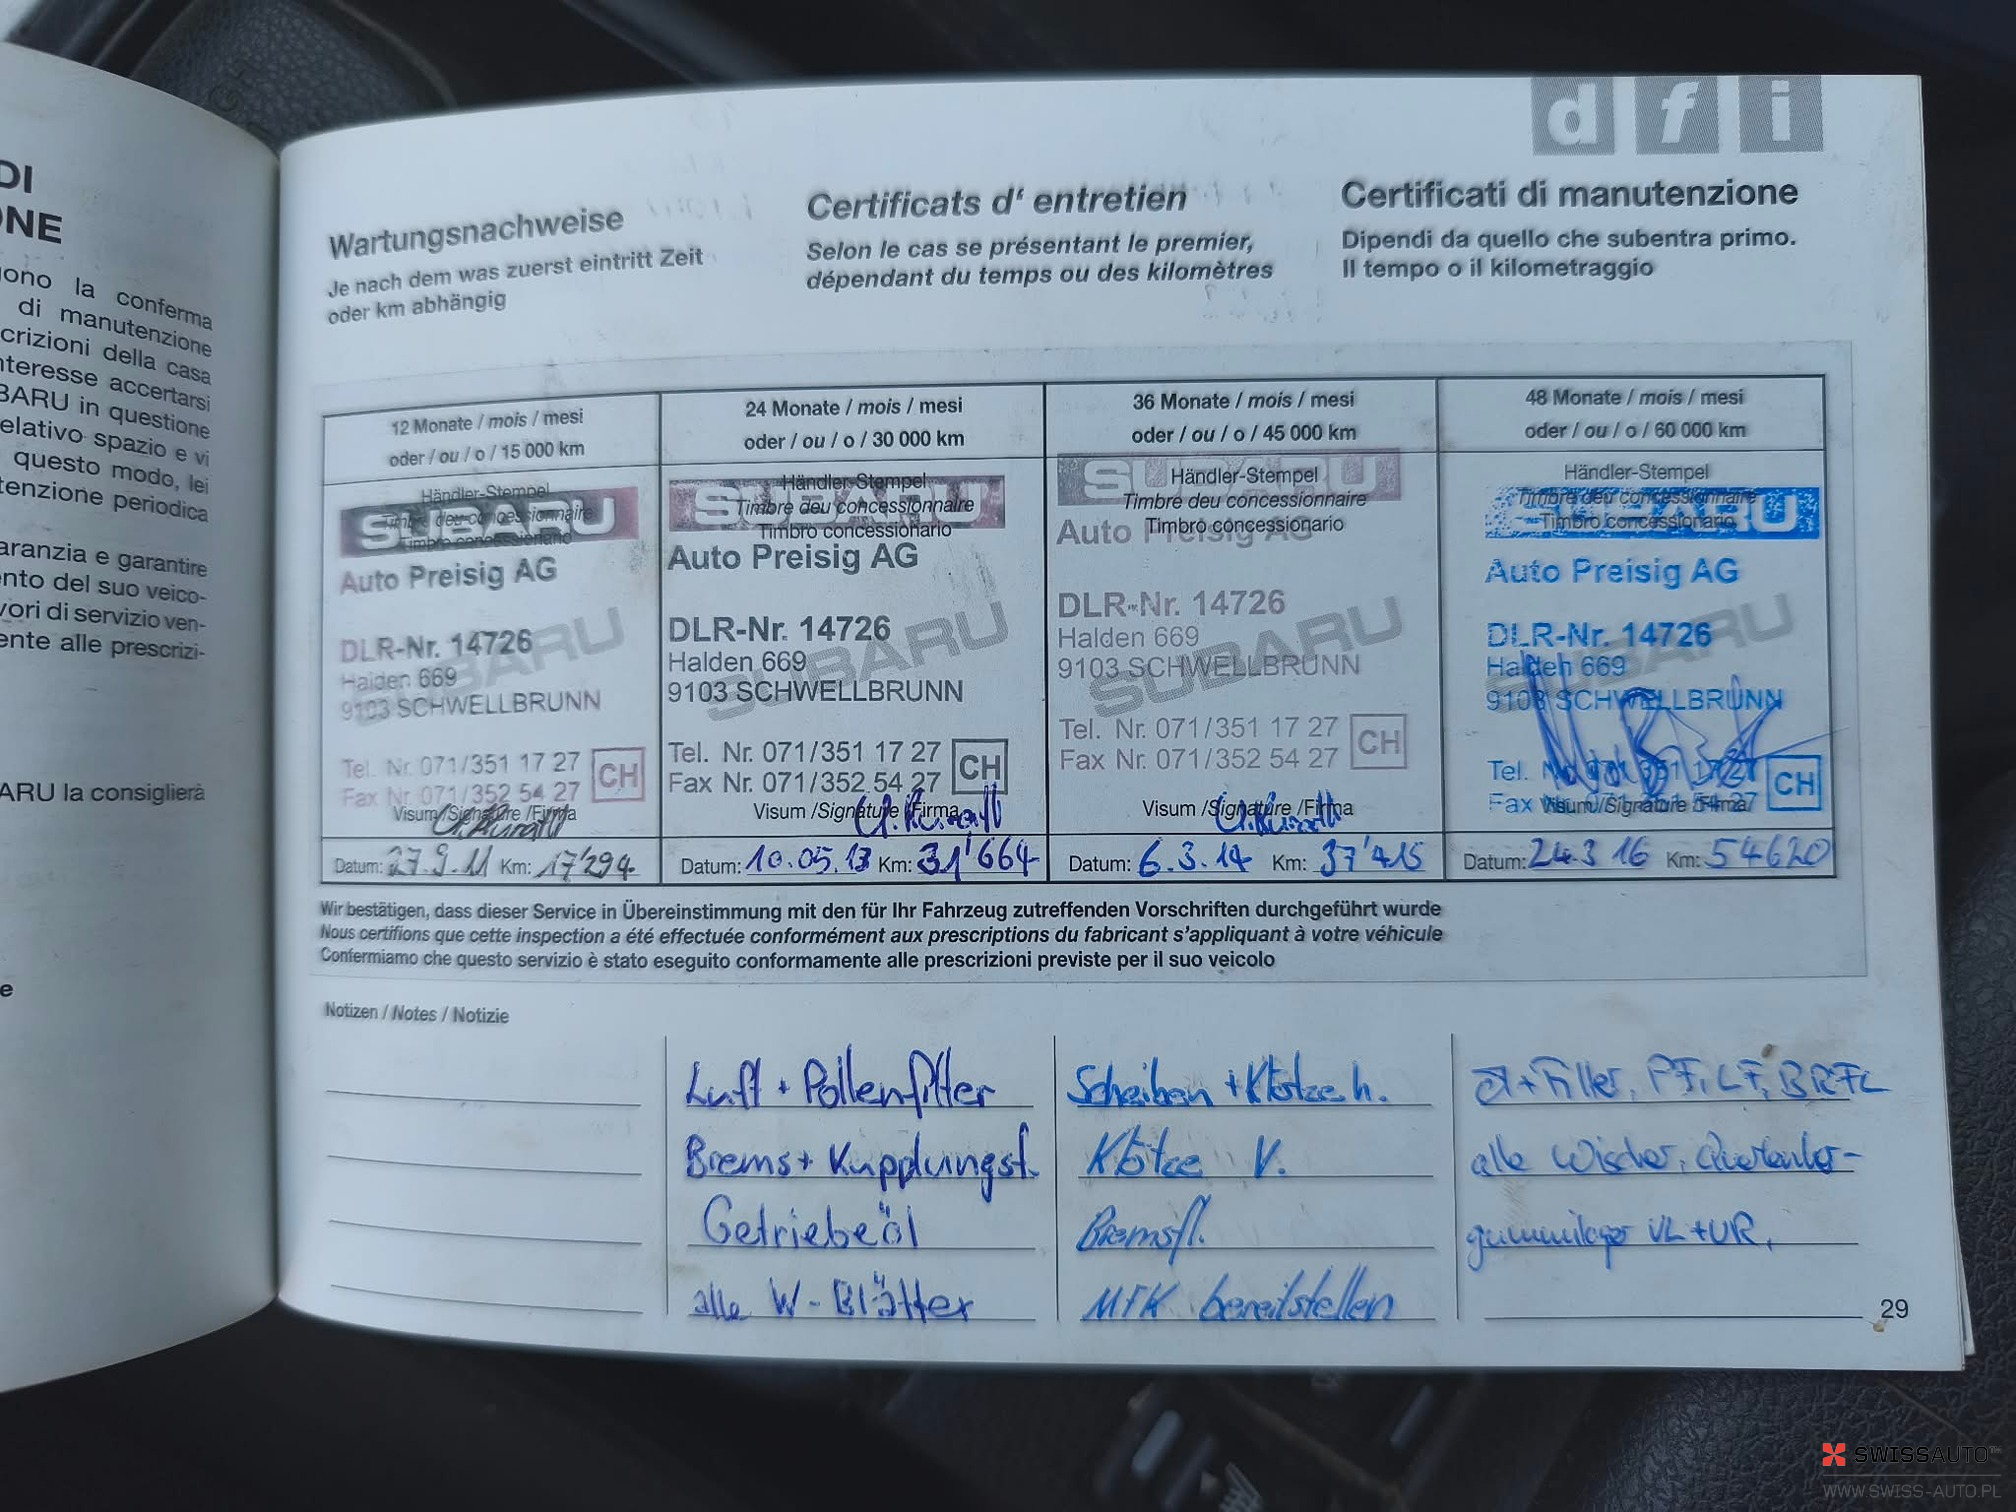 DI
ONE
ono la conferma
di manutenzione
crizioni della casa
nteresse accertarsi
BARU in questione
elativo spazio e vi
questo modo, lei
tenzione periodica
aranzia e garantire
nto del suo veico-
vori di servizio ven-
ente alle prescrizi-
ARU la consiglierà
e
d f i
Wartungsnachweise
Je nach dem was zuerst eintritt Zeit
oder km abhängig
Certificats d‘ entretien
Selon le cas se présentant le premier,
dépendant du temps ou des kilomètres
Certificati di manutenzione
Dipendi da quello che subentra primo.
Il tempo o il kilometraggio
12 Monate / mois / mesi
oder / ou / o / 15 000 km
Händler-Stempel
Timbre deu concessionnaire
Timbro concessionario
SUBARU
Auto Preisig AG
SUBARU
DLR-Nr. 14726
Halden 669
9103 SCHWELLBRUNN
Tel. Nr. 071/351 17 27
Fax Nr. 071/352 54 27
CH
Visum /Signature /Firma
Datum: 27.9.11 Km: 17'294
24 Monate / mois / mesi
oder / ou / o / 30 000 km
Händler-Stempel
Timbre deu concessionnaire
Timbro concessionario
SUBARU
Auto Preisig AG
SUBARU
DLR-Nr. 14726
Halden 669
9103 SCHWELLBRUNN
Tel. Nr. 071/351 17 27
Fax Nr. 071/352 54 27
CH
Visum /Signature /Firma
Datum: 10.05.13 Km: 31'664
36 Monate / mois / mesi
oder / ou / o / 45 000 km
Händler-Stempel
Timbre deu concessionnaire
Timbro concessionario
SUBARU
Auto Preisig AG
SUBARU
DLR-Nr. 14726
Halden 669
9103 SCHWELLBRUNN
Tel. Nr. 071/351 17 27
Fax Nr. 071/352 54 27
CH
Visum /Signature /Firma
Datum: 6.3.14 Km: 37'415
48 Monate / mois / mesi
oder / ou / o / 60 000 km
Händler-Stempel
Timbre deu concessionnaire
Timbro concessionario
SUBARU
Auto Preisig AG
SUBARU
DLR-Nr. 14726
Halden 669
9103 SCHWELLBRUNN
Tel.
Fax
CH
Visum/Signature /Firma
Datum: 24.3 16 Km: 54620
Wir bestätigen, dass dieser Service in Übereinstimmung mit den für Ihr Fahrzeug zutreffenden Vorschriften durchgeführt wurde
Nous certifions que cette inspection a été effectuée conformément aux prescriptions du fabricant s'appliquant à votre véhicule
Confermiamo che questo servizio è stato eseguito conformamente alle prescrizioni previste per il suo veicolo
Notizen / Notes / Notizie
Luft + Pollenfilter
Brems + Kupplungsf.
Getriebeöl
alle W-Blätter
Scheiben + Klötze h.
Klötze V.
Bremsfl.
MFK bereitstellen
Öl + Filter, PF, LF, BRFL
alle Wischer, Querlenker-
gummilager VL + VR,
29
SWISSAUTO
WWW.SWISS-AUTO.PL